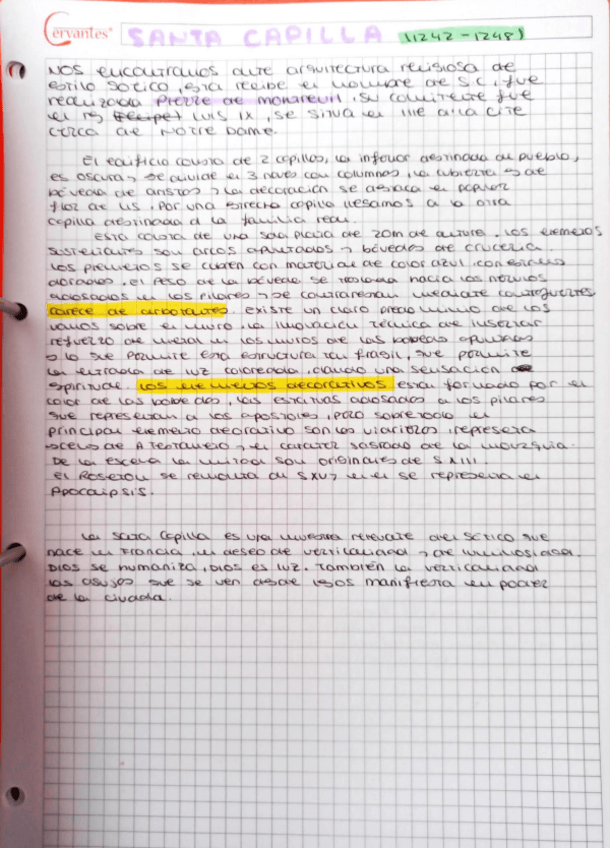 Cervantes® SANTA CAPILLA (1242-1248)
NOS encontramos ante arquitectura religiosa de
estilo gótico, esta recibe el nombre de S.C, fue
realizada Pierre de monareuil, su comitente fue
el rey Luis IX, se situa en Ille a la Cite
cerca de Notre Dame.
El edificio consta de 2 capillas, la inferior destinada al pueblo,
es oscura y se divide en 3 naves con columnas, la cubierta es de
bóveda de aristas y la decoración se destaca el popular
flor de lis. Por una estrecha capilla llegamos a la otra
capilla destinada a la familia real.
Esta consta de una sola planta de 20m de altura. Los elementos
sustentantes son arcos apuntados y bóvedas de crucería.
Los primeros se cubren con material de color azul, con estrellas
doradas. El peso de la bóveda se traslada hacia los nervios
adosados en los pilares y se contrarrestan mediante contrafuertes,
carece de arbotantes. Existe un claro predominio de los
vanos sobre el muro. La innovación técnica de insertar
refuerzo de metal en los muros de las bóvedas apuntadas
es lo que permite esta estructura tan frágil, que permite
la entrada de luz coloreada, dando una sensación
espiritual. Los elementos decorativos está formado por el
color de las bóvedas, las esculturas adosadas a los pilares
que representan a los apostoles, pero sobretodo el
principal elemento decorativo son las vidrieras, representa
escenas de A. Testamento y el carácter sagrado de la monarquia.
De la escena la mitad son originales de S XIII.
El Roseton se remonta al S XV y en el se representa el
Apocalipsis.
La Santa Capilla es una muestra relevante del gótico que
nace en Francia, un deseo de verticalidad y de luminosidad.
Dios se humaniza, Dios es luz. También la verticalidad
las agujas que se ven desde lejos manifiesta el poder
de la ciudad.